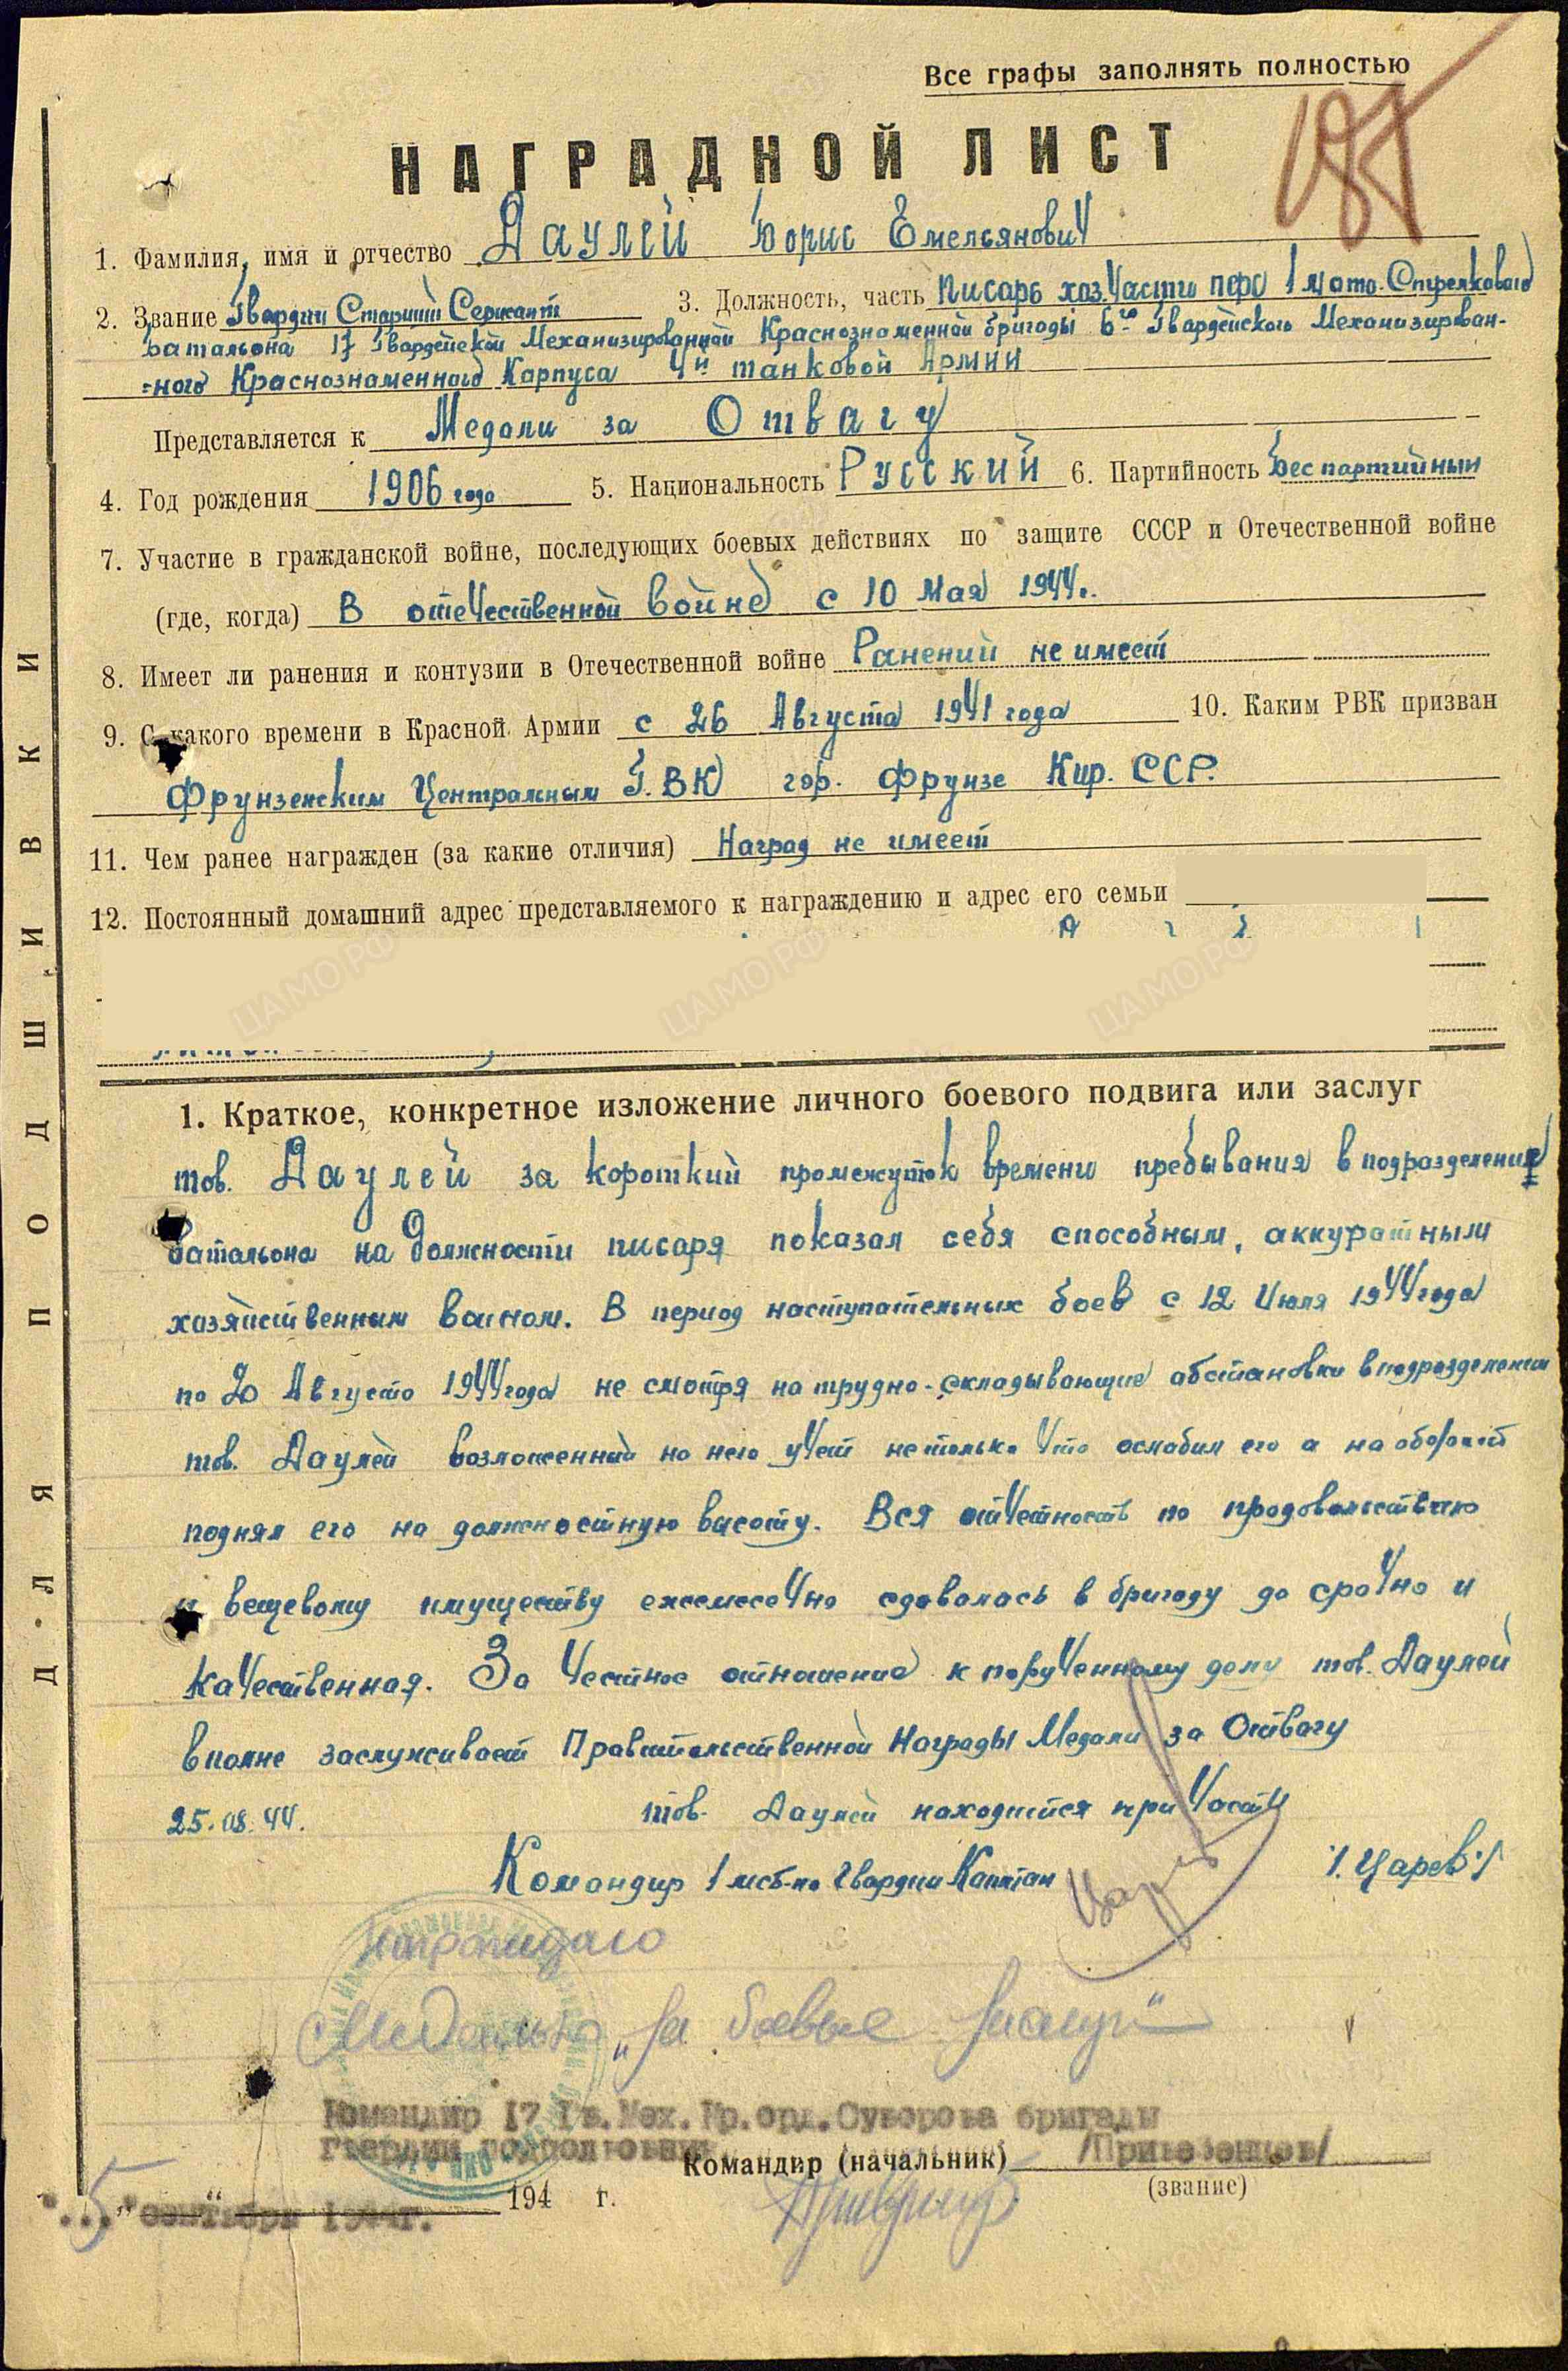 Все графы заполнять полностью
НАГРАДНОЙ ЛИСТ
1. Фамилия, имя и отчество Даулей Борис Емельянович
2. Звание Гвардии Старший Сержант 3. Должность, часть Писарь хоз.части перв 1 мото-Стрелкового
батальона 17 Гвардейской Механизированной Краснознаменной бригады 6го Гвардейского Механизирован-
=ного Краснознаменного Корпуса 4й танковой Армии
Представляется к Медали за Отвагу
4. Год рождения 1906 года 5. Национальность Русский 6. Партийность Беспартийный
7. Участие в гражданской войне, последующих боевых действиях по защите СССР и Отечественной войне
(где, когда) В отечественной войне с 10 Мая 1944г.
8. Имеет ли ранения и контузии в Отечественной войне Ранений не имеет
9. С какого времени в Красной Армии с 26 Августа 1941 года 10. Каким РВК призван
Фрунзенским Центральным Г.ВК гор. Фрунзе Кир. ССР.
11. Чем ранее награжден (за какие отличия) Наград не имеет
12. Постоянный домашний адрес представляемого к награждению и адрес его семьи
1. Краткое, конкретное изложение личного боевого подвига или заслуг
тов. Даулей за короткий промежуток времени пребывания в подразделении
батальона на должности писаря показал себя способным, аккуратным
хозяйственным воином. В период наступательных боев с 12 Июля 1944 года
по 20 Августа 1944 года не смотря на трудно-складывающие обстановки в подразделении
тов. Даулей возложенный на него учет не только что ослабил его а на оборот
поднял его на должностную высоту. Вся отчетность по продовольствию
и вещевому имуществу ежемесечно сдавалась в бригаду до срочно и
качественная. За честное отношение к порученному делу тов. Даулей
вполне заслуживает Правительственной Награды Медали за Отвагу
25.08.44. тов. Даулей находится при части
Командир 1 мсб-на Гвардии Капитан /.Царев./
Награждаю
Медалью „За боевые заслуги"
Командир 17 Гв.Мех.Кр.орд.Суворова бригады
гвардии подполковник
Командир (начальник) /Привезенцев/
(звание)
„5" сентября 1944г. 194 г.
ДЛЯ ПОДШИВКИ
ЦАМО РФ
ЦАМО РФ
ЦАМО РФ